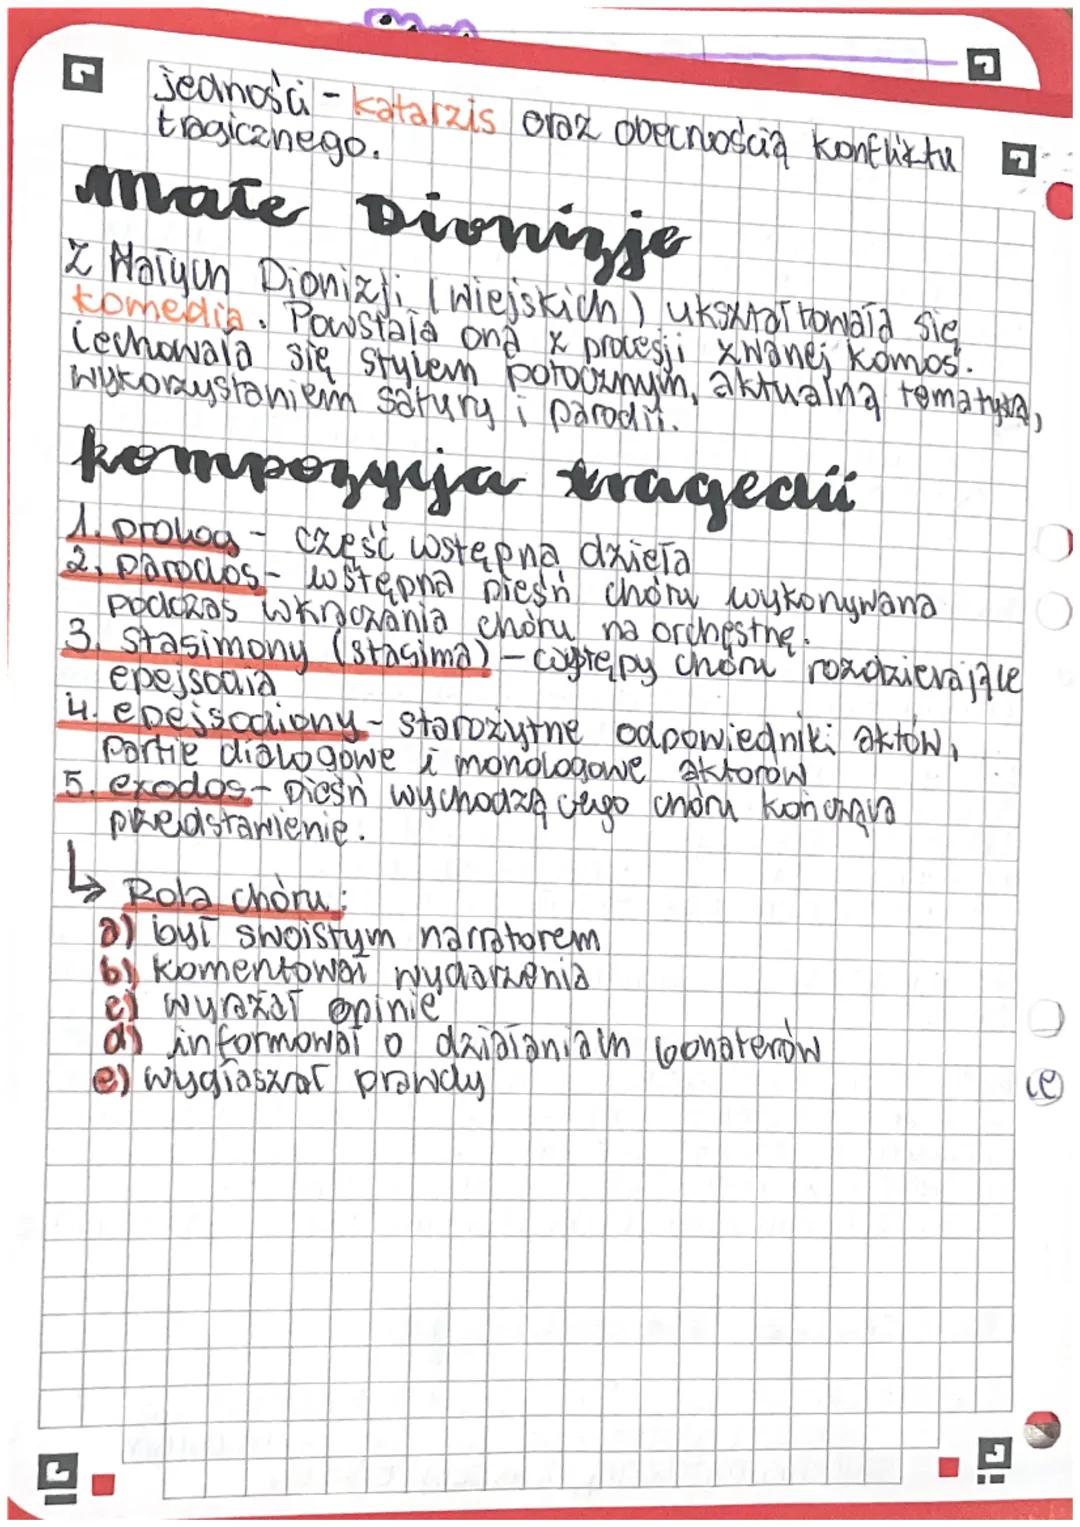 jedności - katarzis oraz obecnością konfliktu
tragicznego.
Małe Dionizje
Z Małych Dionizji (wiejskich) ukształtowała się
komedia. Powstała ona z procesji zwanej komos.
Cechowała się stylem potocznym, aktualną tematyką,
wykorzystaniem satyry i parodii.
kompozycja tragedii
1. prolog - część wstępna dzieła
2. parodos - wstępna pieśń chóru wykonywana
podczas wkraczania chóru na orchestrę.
3. Stasimony (stasima) - występy chóru rozdzierające
epejsodia
4. epejsodiony - starożytne odpowiedniki aktów,
partie dialogowe i monologowe aktorów
5. exodos - pieśń wychodzącego chóru kończąca
przedstawienie.
↳ Rola chóru:
a) był swoistym narratorem
b) komentował wydarzenia
c) wyrażał opinie
d) informował o działaniach bohaterów
e) wygłaszał prawdy
ce